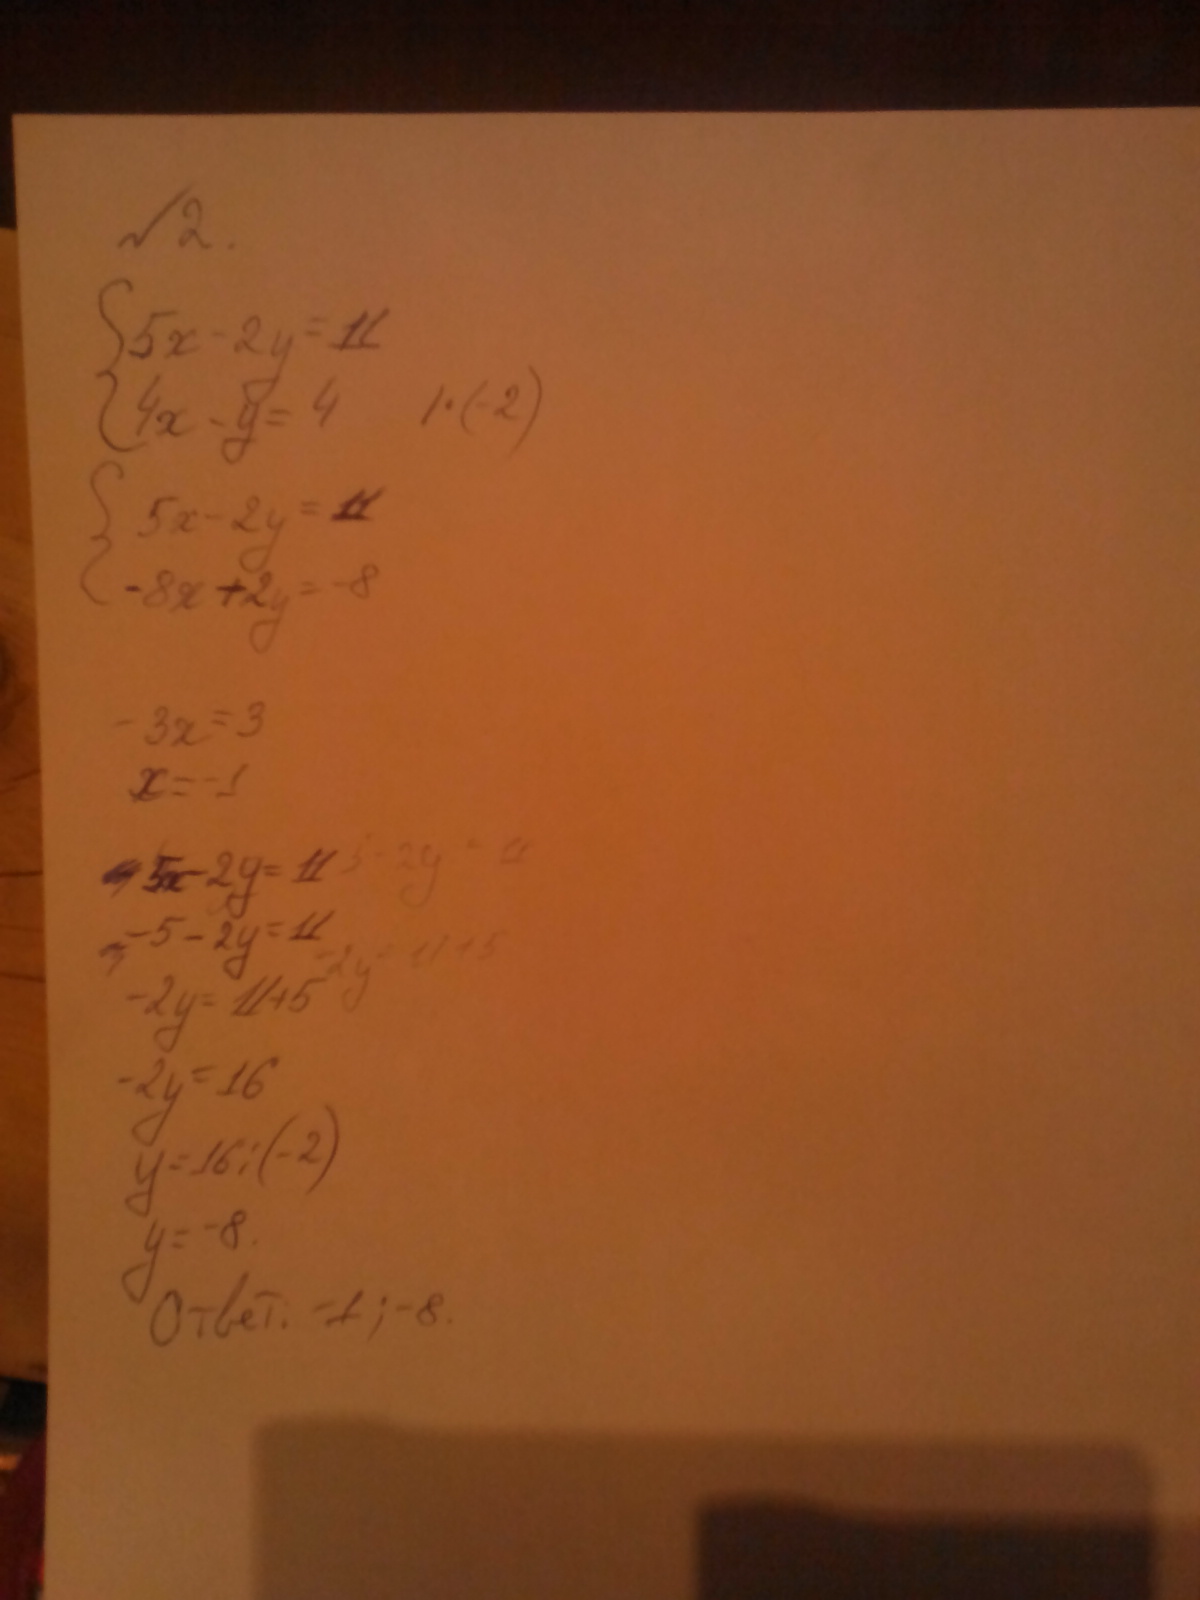 №2.
5x-2y=11
4x-y=4 |·(-2)
5x-2y=11
-8x+2y=-8
-3x=3
x=-1
5x-2y=11
-5-2y=11
-2y=11+5
-2y=16
y=16:(-2)
y=-8.
Ответ: -1; -8.